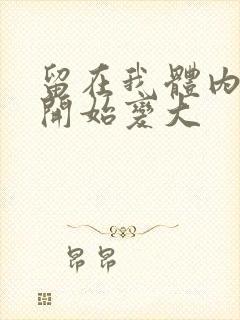 留在我體內
開始變大
昂昂